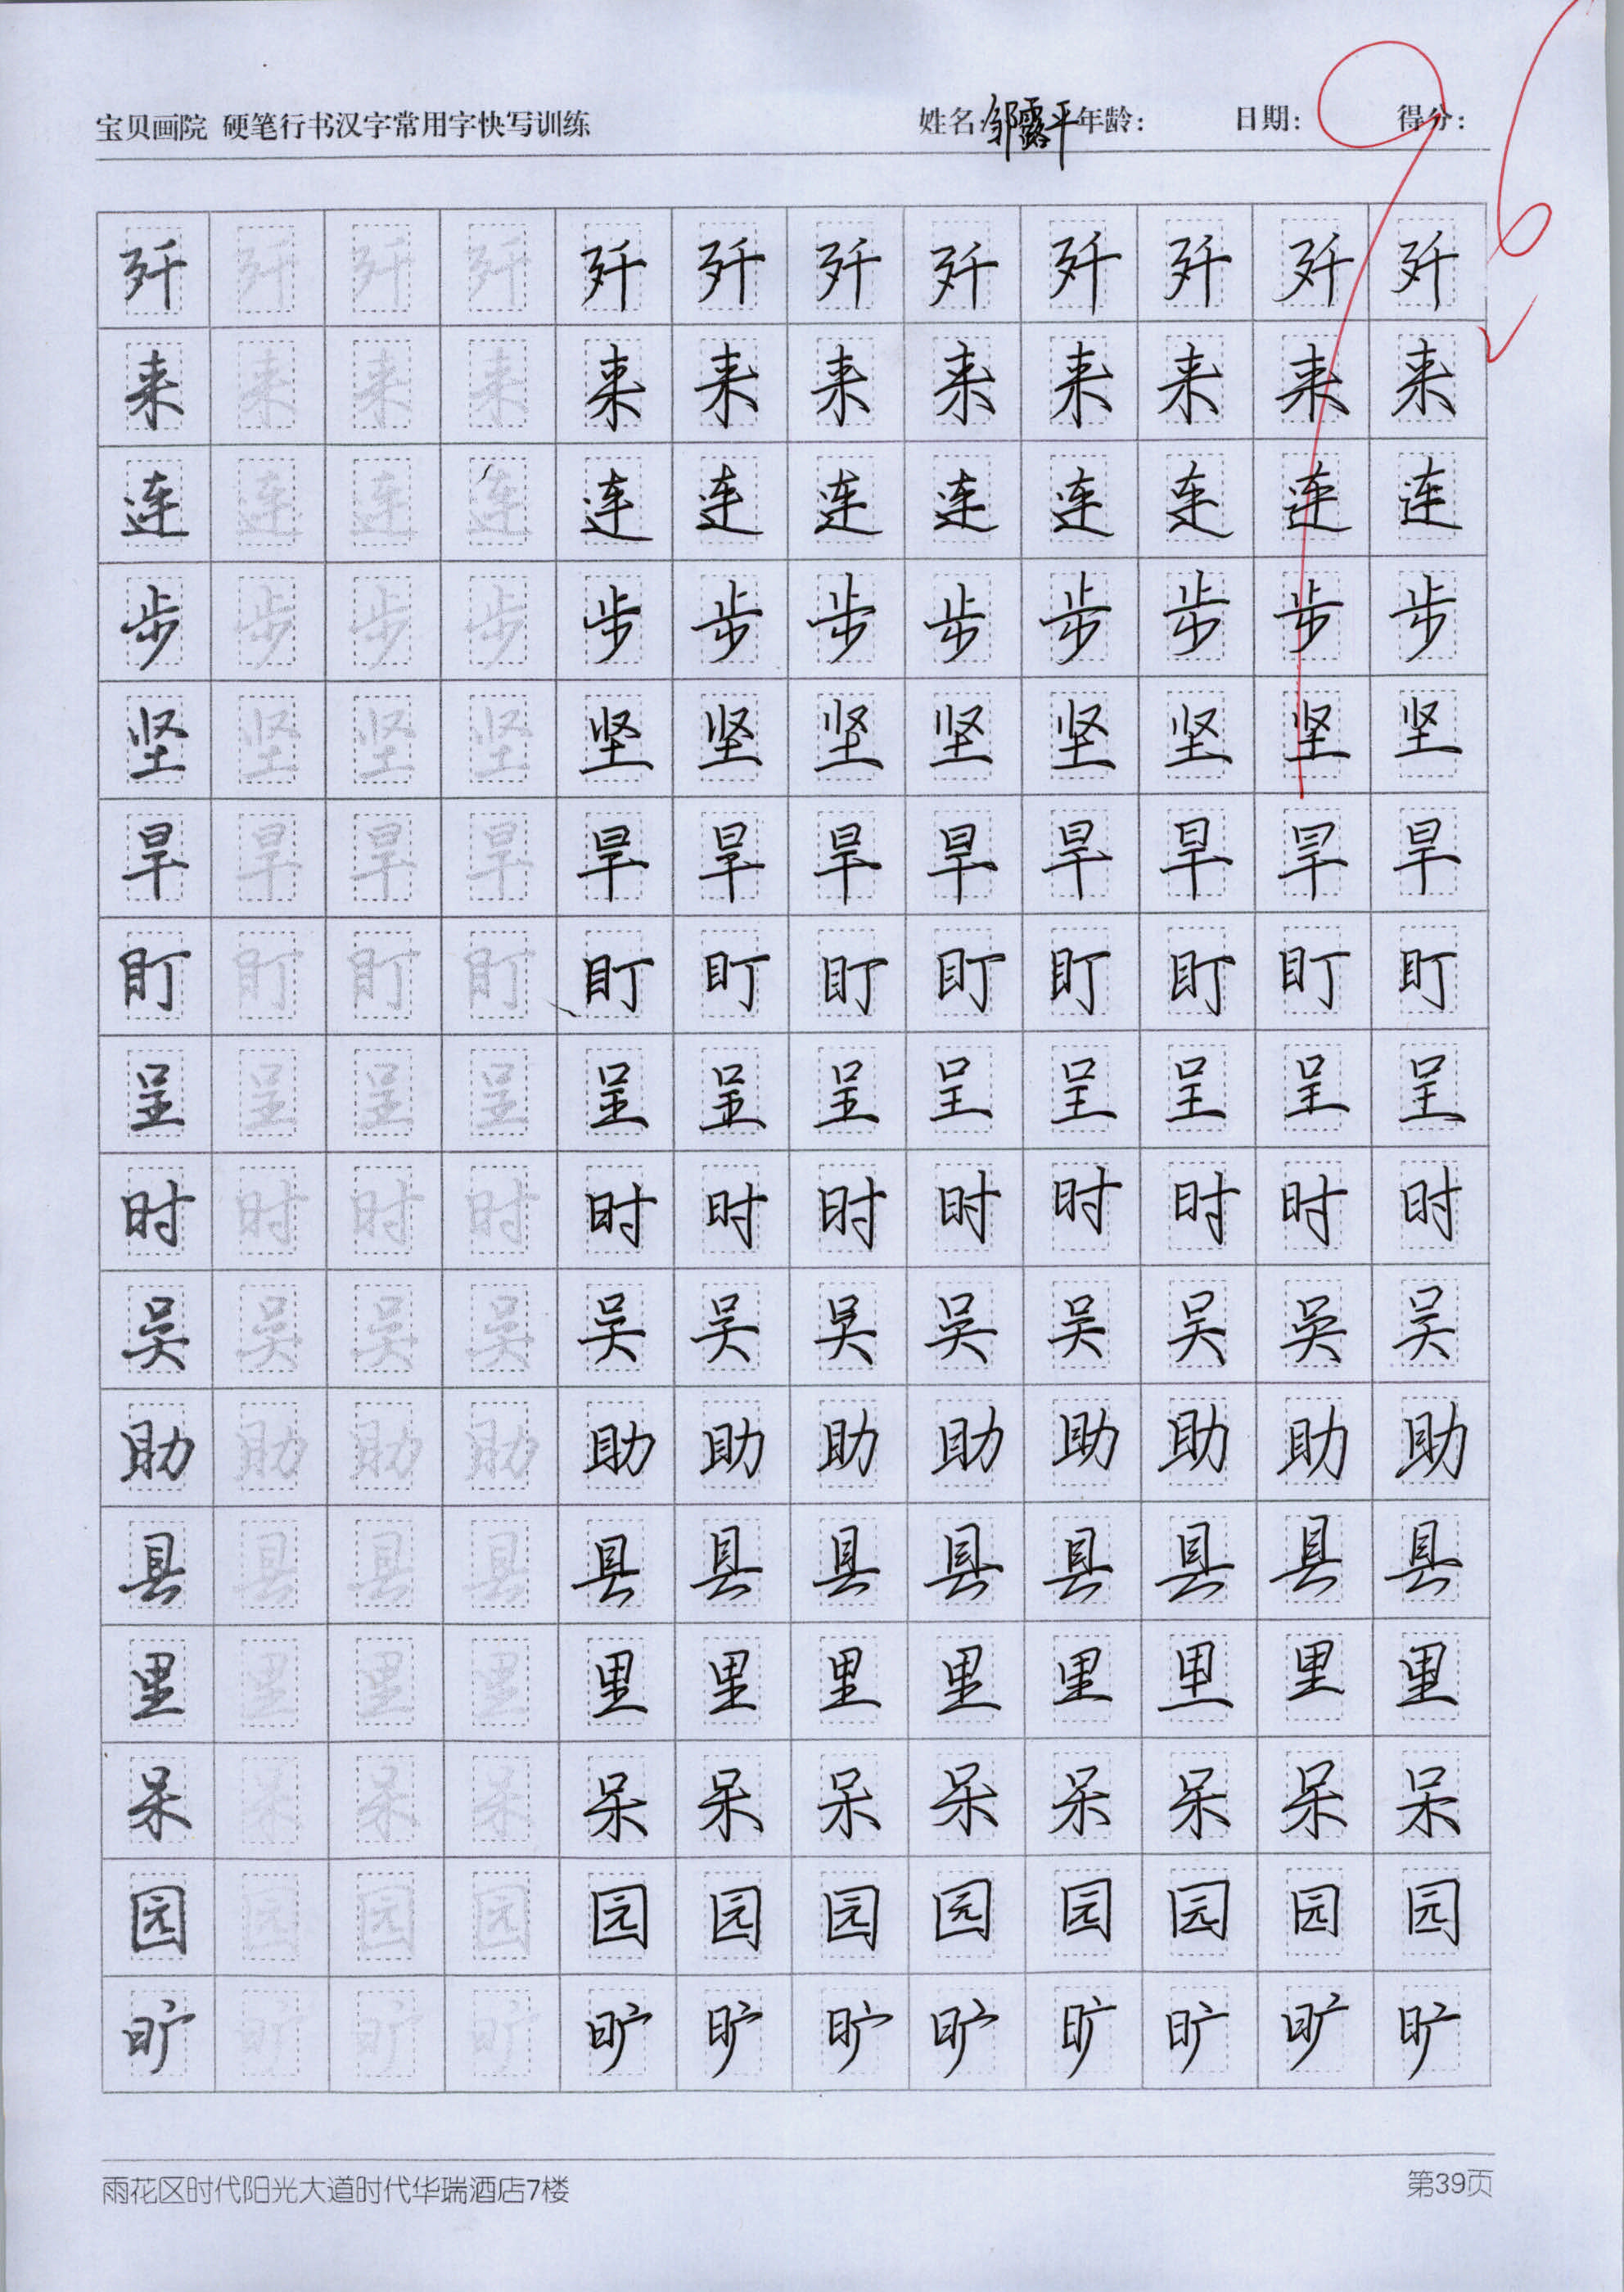 宝贝画院 硬笔行书汉字常用字快写训练 姓名:邹露平 年龄: 日期: 得分: 96
歼 歼 歼 歼 歼 歼 歼 歼 歼 歼 歼 歼
来 来 来 来 来 来 来 来 来 来 来 来
连 连 连 连 连 连 连 连 连 连 连 连
步 步 步 步 步 步 步 步 步 步 步 步
坚 坚 坚 坚 坚 坚 坚 坚 坚 坚 坚 坚
旱 旱 旱 旱 旱 旱 旱 旱 旱 旱 旱 旱
盯 盯 盯 盯 盯 盯 盯 盯 盯 盯 盯 盯
呈 呈 呈 呈 呈 呈 呈 呈 呈 呈 呈 呈
时 时 时 时 时 时 时 时 时 时 时 时
吴 吴 吴 吴 吴 吴 吴 吴 吴 吴 吴 吴
助 助 助 助 助 助 助 助 助 助 助 助
县 县 县 县 县 县 县 县 县 县 县 县
里 里 里 里 里 里 里 里 里 里 里 里
呆 呆 呆 呆 呆 呆 呆 呆 呆 呆 呆 呆
园 园 园 园 园 园 园 园 园 园 园 园
旷 旷 旷 旷 旷 旷 旷 旷 旷 旷 旷 旷
雨花区时代阳光大道时代华瑞酒店7楼 第39页